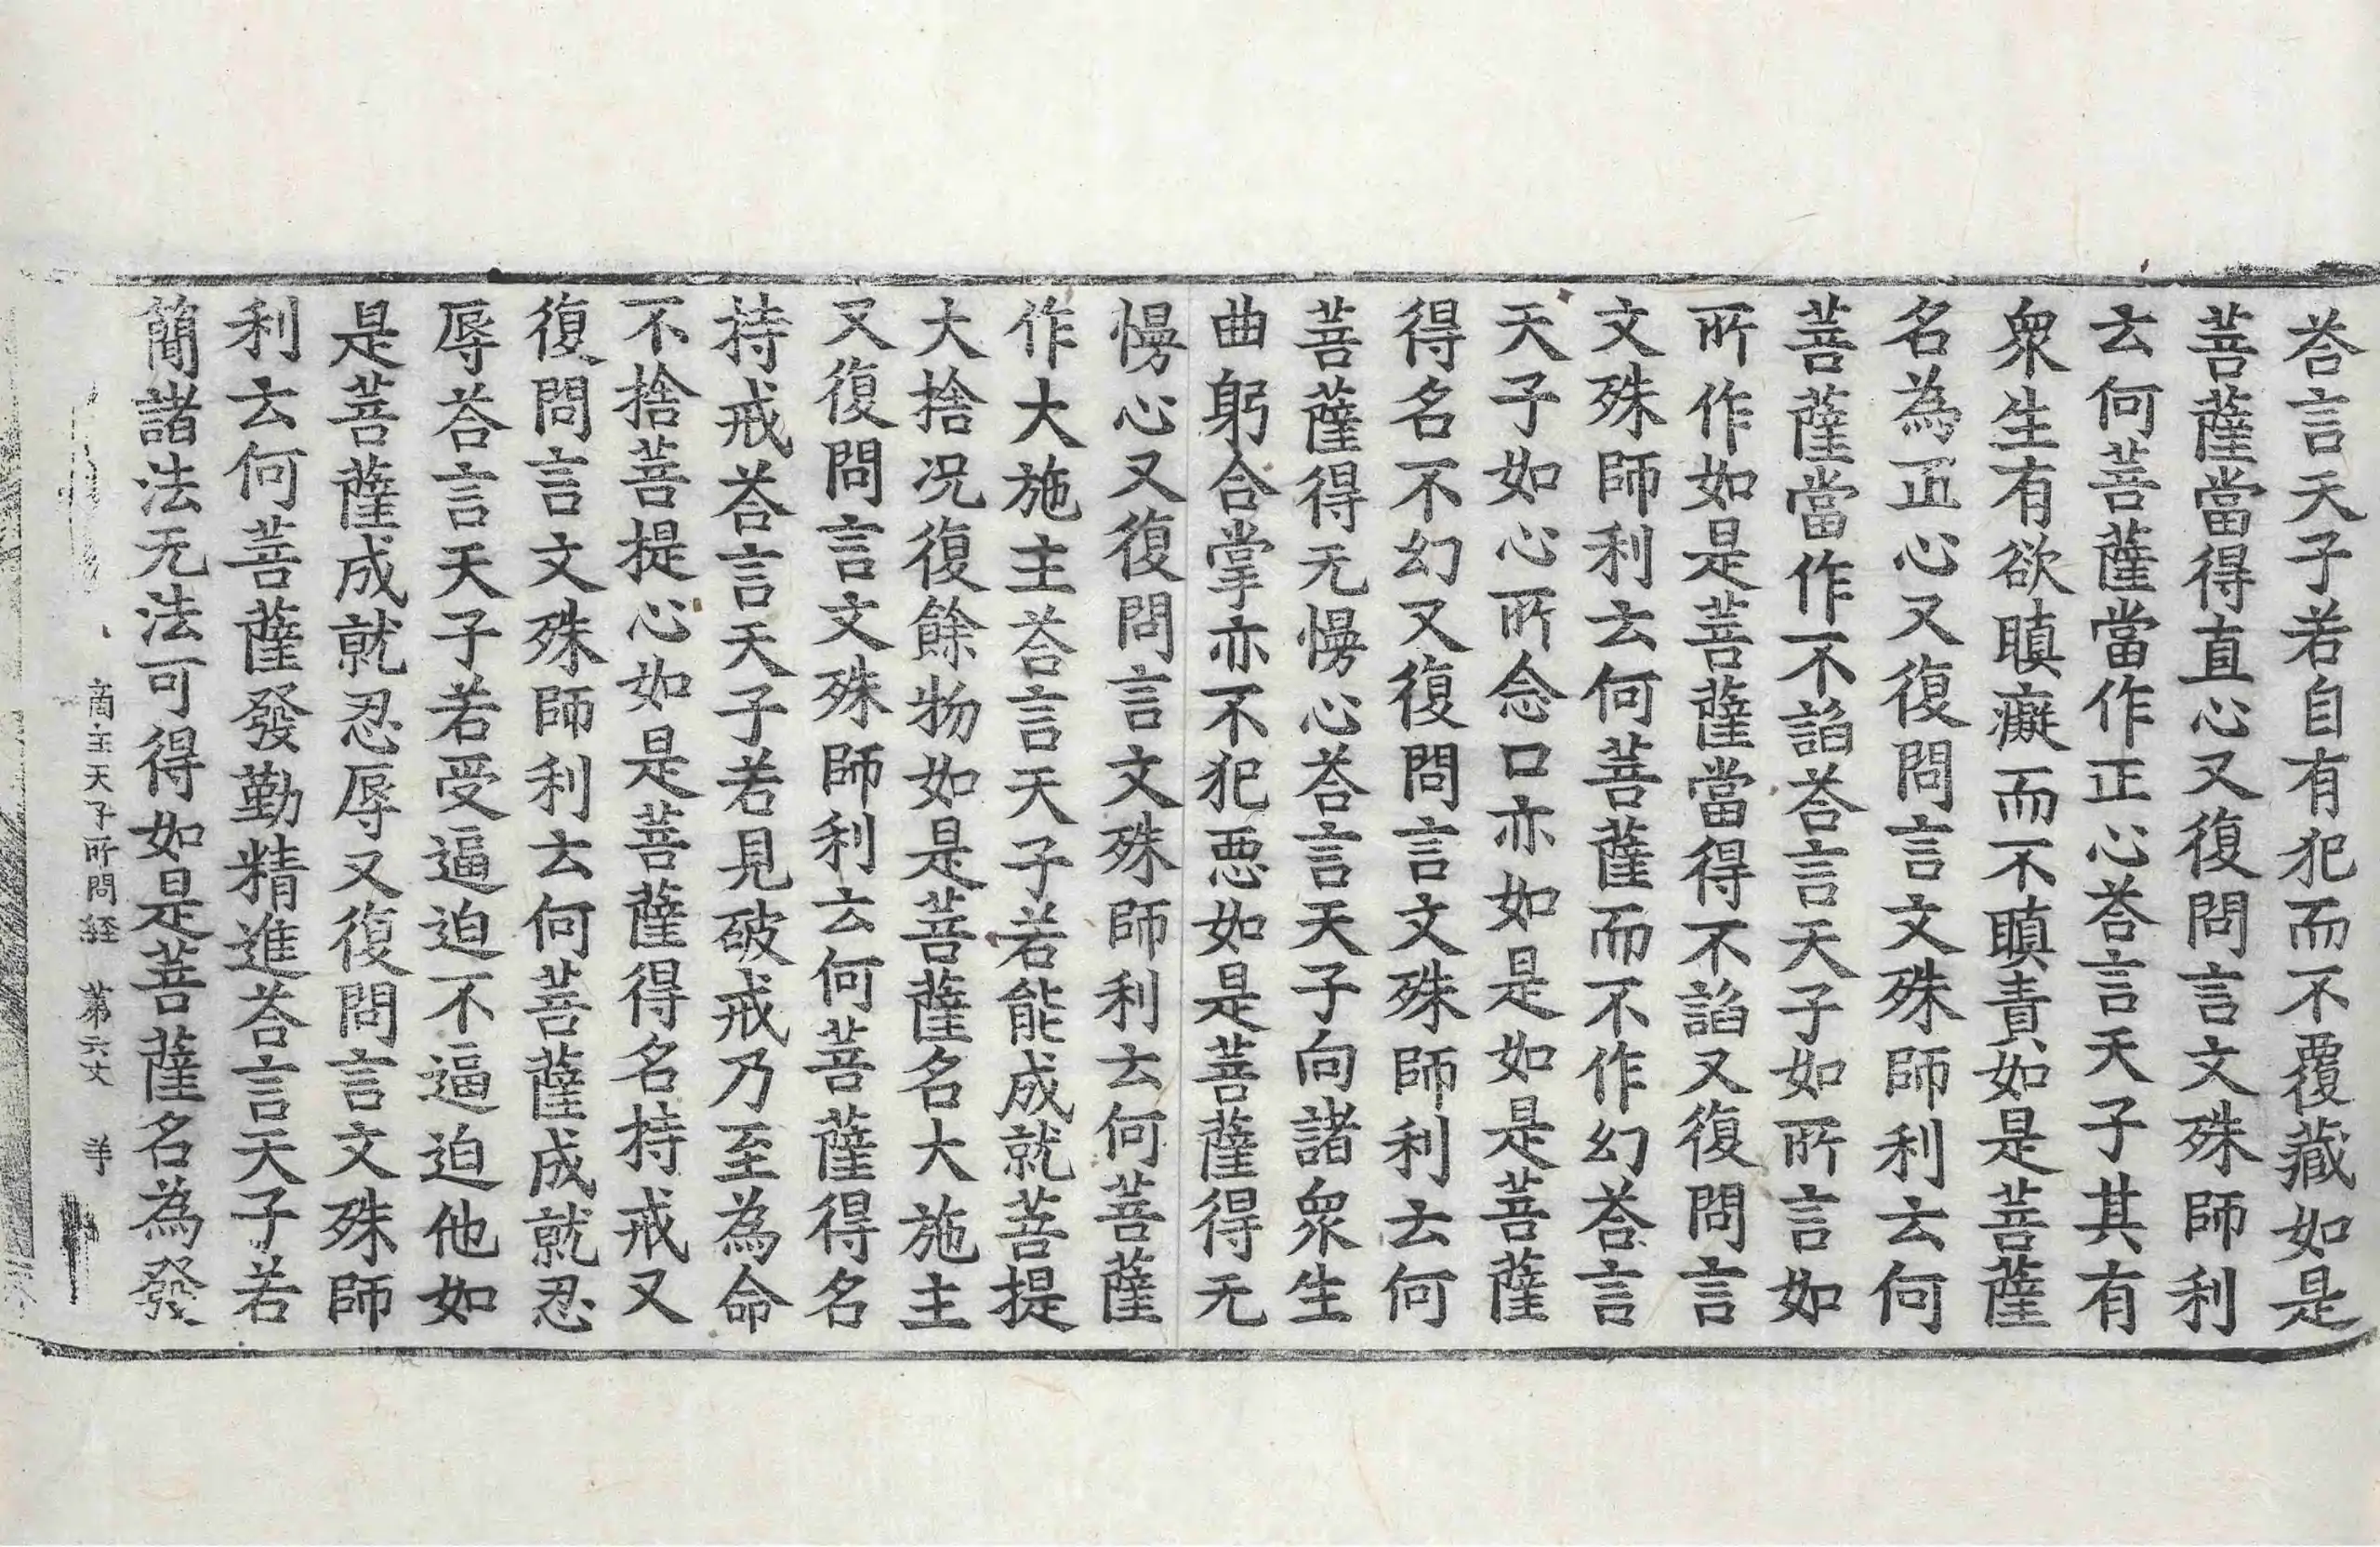 荅言天子若自有犯而不覆藏如是
菩薩當得直心又復問言文殊師利
云何菩薩當作正心荅言天子其有
衆生有欲瞋癡而不瞋責如是菩薩
名為正心又復問言文殊師利云何
菩薩當作不諂荅言天子如所言如
所作如是菩薩當得不諂又復問言
文殊師利云何菩薩而不作幻荅言
天子如心所念口亦如是如是菩薩
得名不幻又復問言文殊師利云何
菩薩得无慢心荅言天子向諸衆生
曲躬合掌亦不犯惡如是菩薩得无
慢心又復問言文殊師利云何菩薩
作大施主荅言天子若能成就菩提
大捨况復餘物如是菩薩名大施主
又復問言文殊師利云何菩薩得名
持戒荅言天子若見破戒乃至為命
不捨菩提心如是菩薩得名持戒又
復問言文殊師利云何菩薩成就忍
辱荅言天子若受逼迫不逼迫他如
是菩薩成就忍辱又復問言文殊師
利云何菩薩發勤精進荅言天子若
簡諸法无法可得如是菩薩名為發
商主天子所問経 第六丈 羊